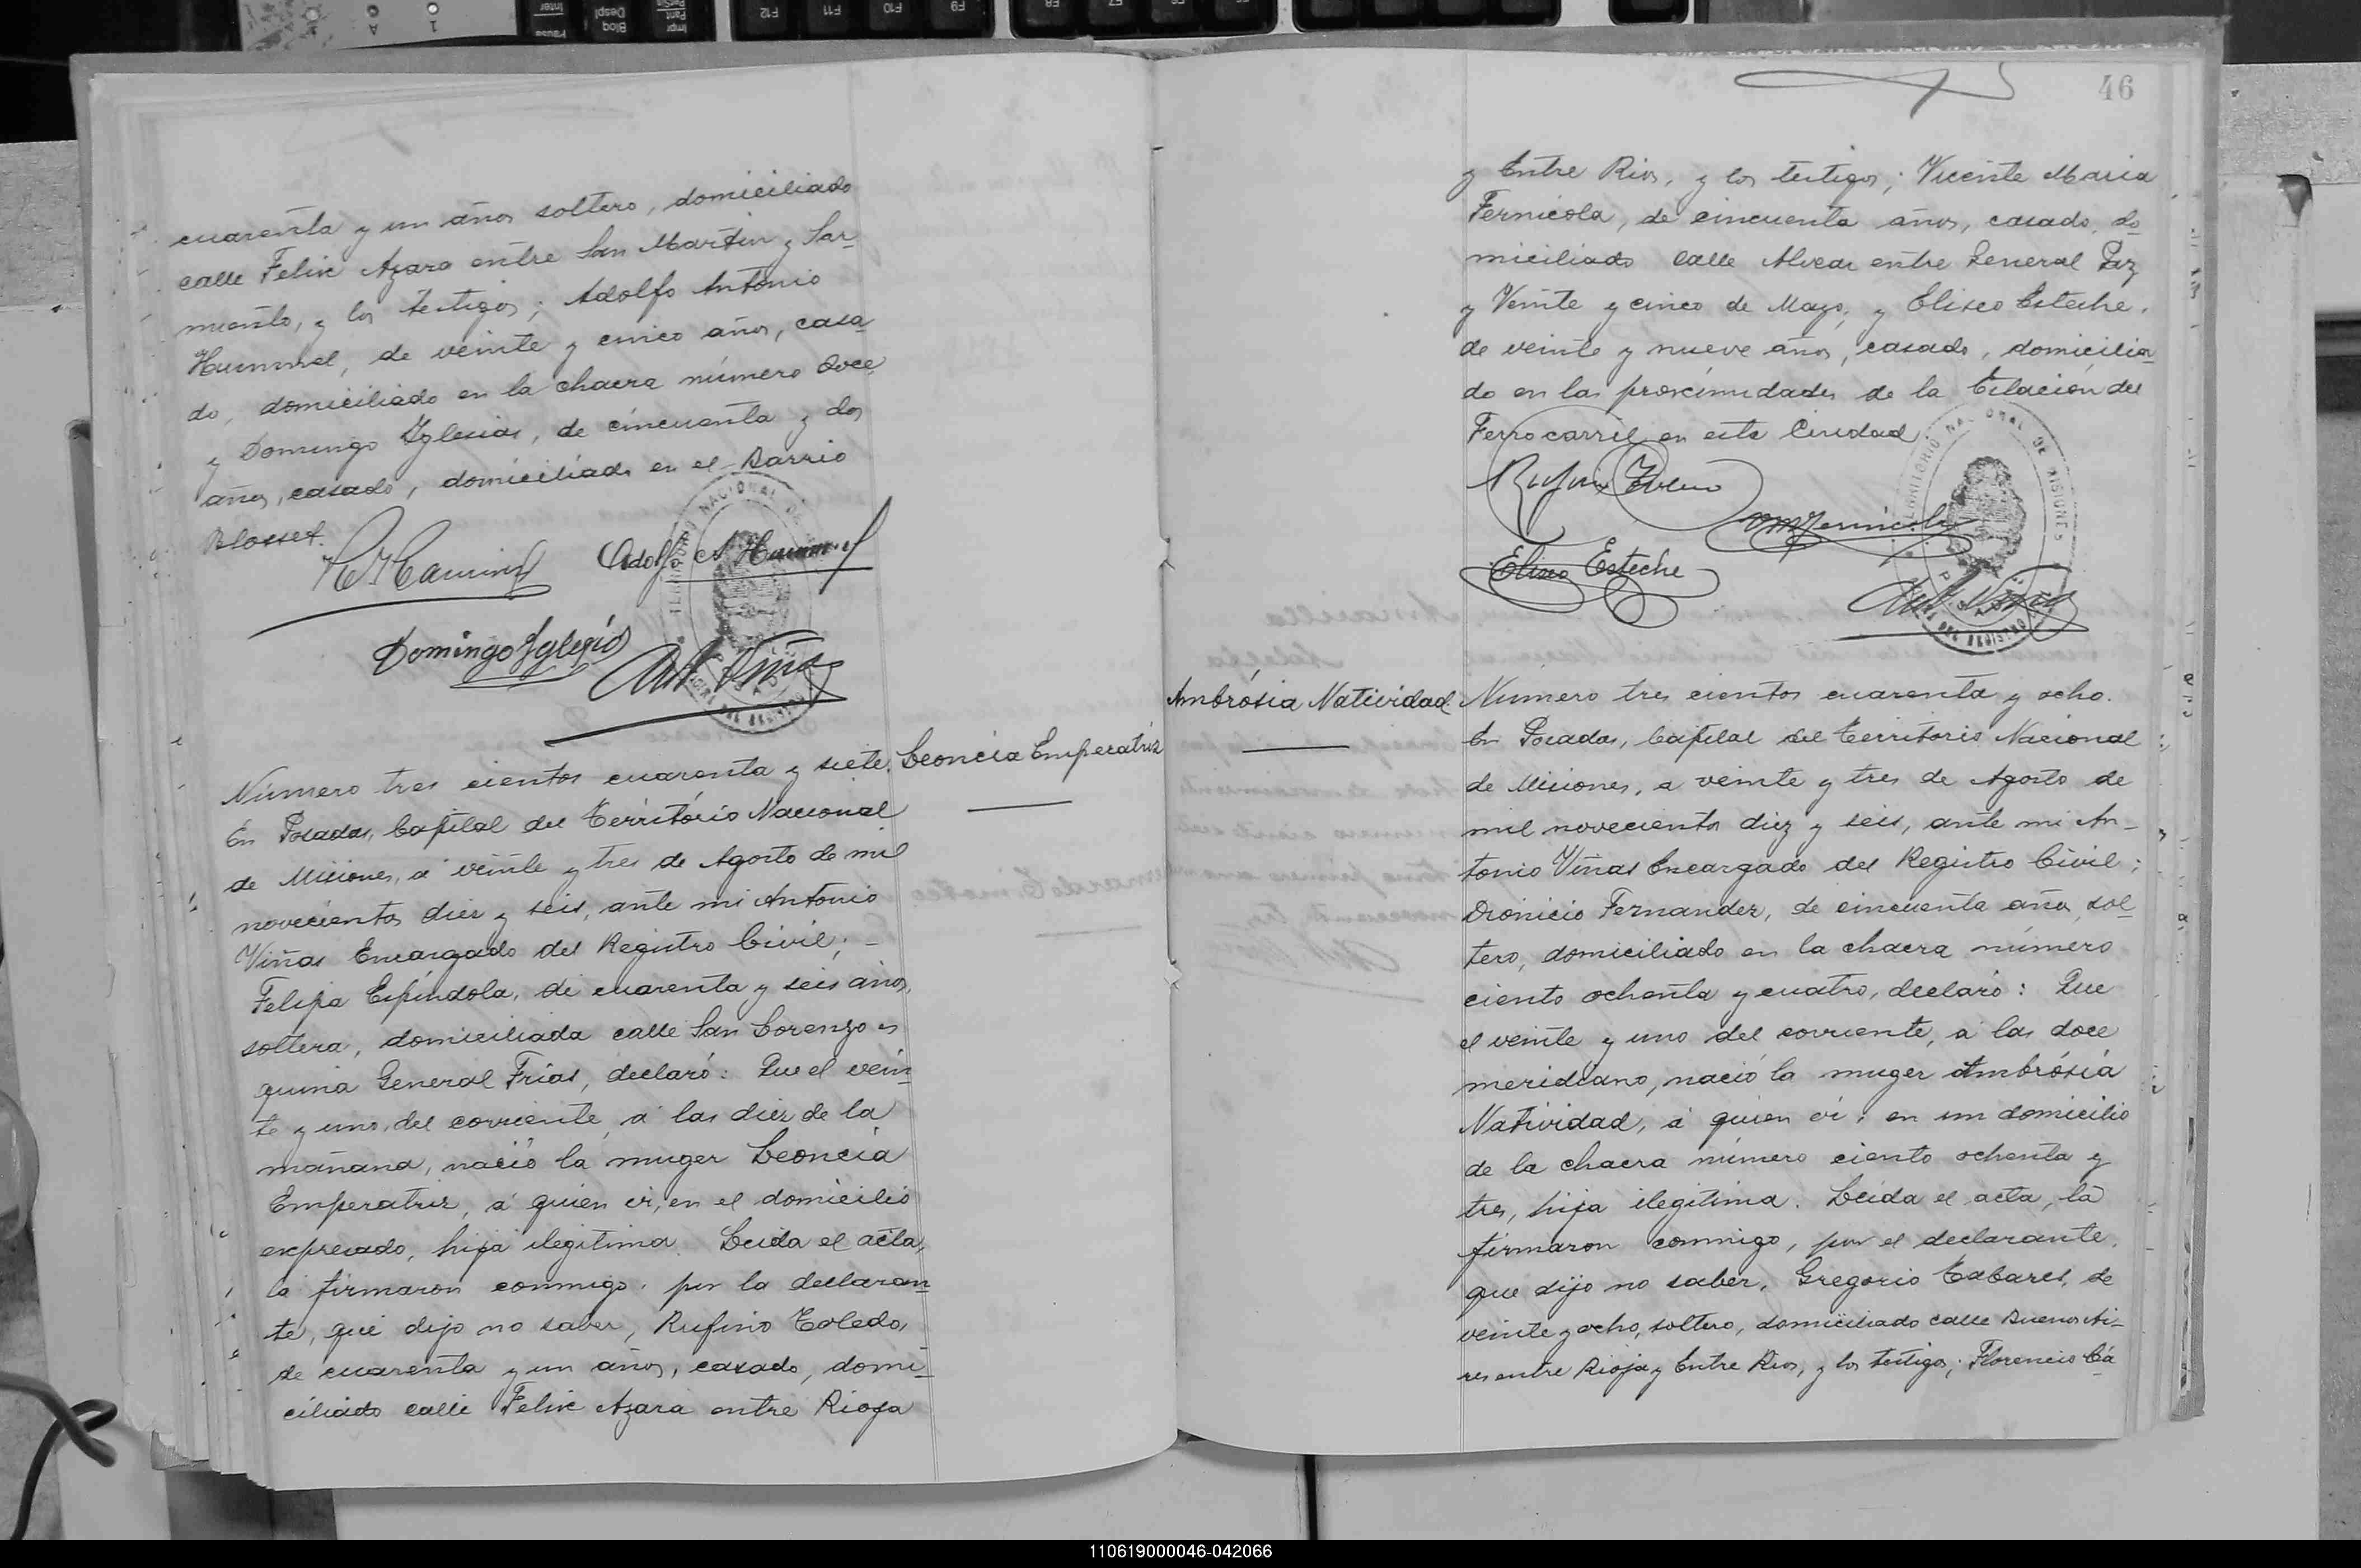 cuarenta y un años soltero, domiciliado
calle Felix Azara entre San Martin y Sar-
miento, y los testigos; Adolfo Antonio
Hummel, de veinte y cinco años, casa
do, domiciliado en la chacra número doce
y Domingo Yglesias, de cincuenta y dos
años, casado, domiciliado en el Barrio
Blosset.
Adolfo A Hummel
Domingo Yglesias
Ant Viñas
Leoncia Emperatriz
Número tres cientos cuarenta y siete.
En Posadas, Capital del Territorio Nacional
de Misiones, á veinte y tres de Agosto de mil
novecientos diez y seis, ante mi Antonio
Viñas Encargado del Registro Civil; -
Felipa Espíndola, de cuarenta y seis años,
soltera, domiciliada calle San Lorenzo es
quina General Frías, declaró: Que el vein-
te y uno del corriente, á las diez de la
mañana, nació la muger Leoncia
Emperatriz, á quien vi, en el domicilio
expresado, hija ilegitima. Leida el acta,
la firmaron conmigo, por la declaran-
te, que dijo no saber, Rufino Toledo,
de cuarenta y un años, casado, domi-
ciliado calle Felix Azara entre Rioja
46
y Entre Rios, y los testigos; Vicente Maria
Fernicola, de cincuenta años, casado, do-
miciliado calle Alvear entre General Paz
y Veinte y cinco de Mayo, y Eliseo Esteche,
de veinte y nueve años, casado, domicilia-
do en las proximidades de la Estación del
Ferro carril en esta Ciudad
Rufino Toledo
VM Fernicola
Eliseo Esteche
Ant Viñas
Ambrósia Natividad.
Número tres cientos cuarenta y ocho.
En Posadas, Capital del Territorio Nacional
de Misiones, a veinte y tres de Agosto de
mil novecientos diez y seis, ante mi An-
tonio Viñas Encargado del Registro Civil;
Dionicio Fernandez, de cincuenta años, sol-
tero, domiciliado en la chacra número
ciento ochenta y cuatro, declaró: Que
el veinte y uno del corriente, á las doce
meridiano, nació la muger Ambrósia
Natividad, á quien vi, en un domicilio
de la chacra número ciento ochenta y
tres, hija ilegitima. Leida el acta, la
firmaron conmigo, por el declarante,
que dijo no saber, Gregorio Tabares, de
veinte y ocho, soltero, domiciliado calle Buenos Ai-
res entre Rioja y Entre Rios, y los testigos; Florencio Cá
110619000046-042066